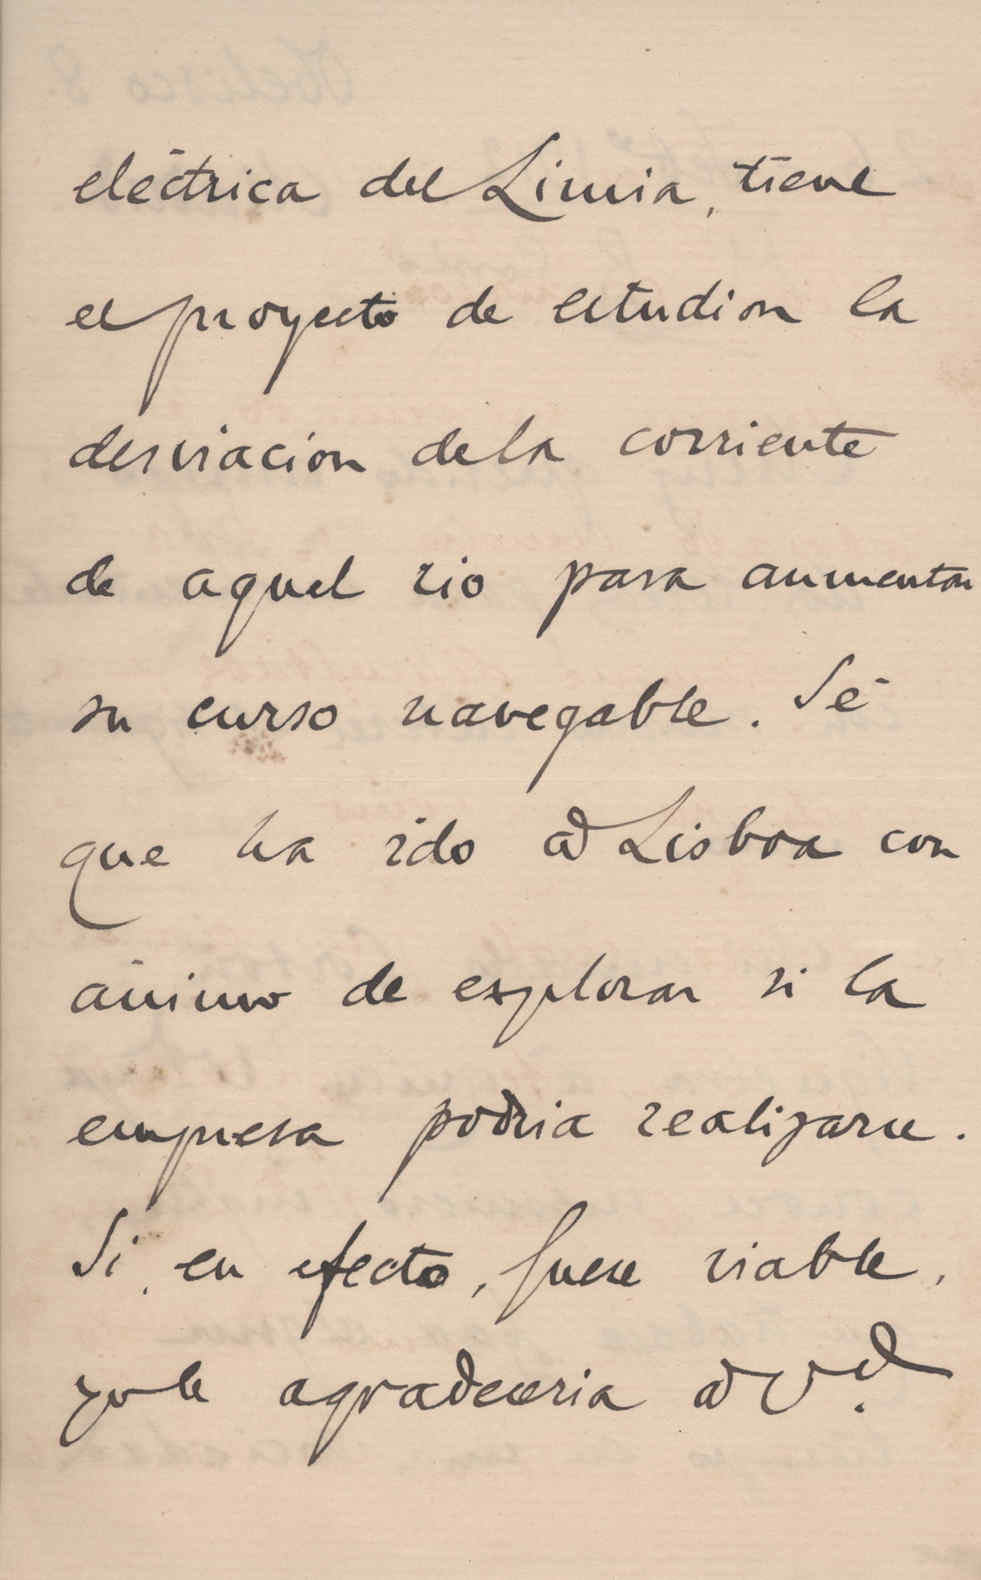 eléctrica del Limia, tiene
el proyecto de estudiar la
desviación de la corriente
de aquel rio para aumentar
su curso navegable. Sé
que ha ido á Lisboa con
ánimo de explorar si la
empresa podria realizarse.
Si, en efecto, fuese viable,
yo le agradeceria á Vd.